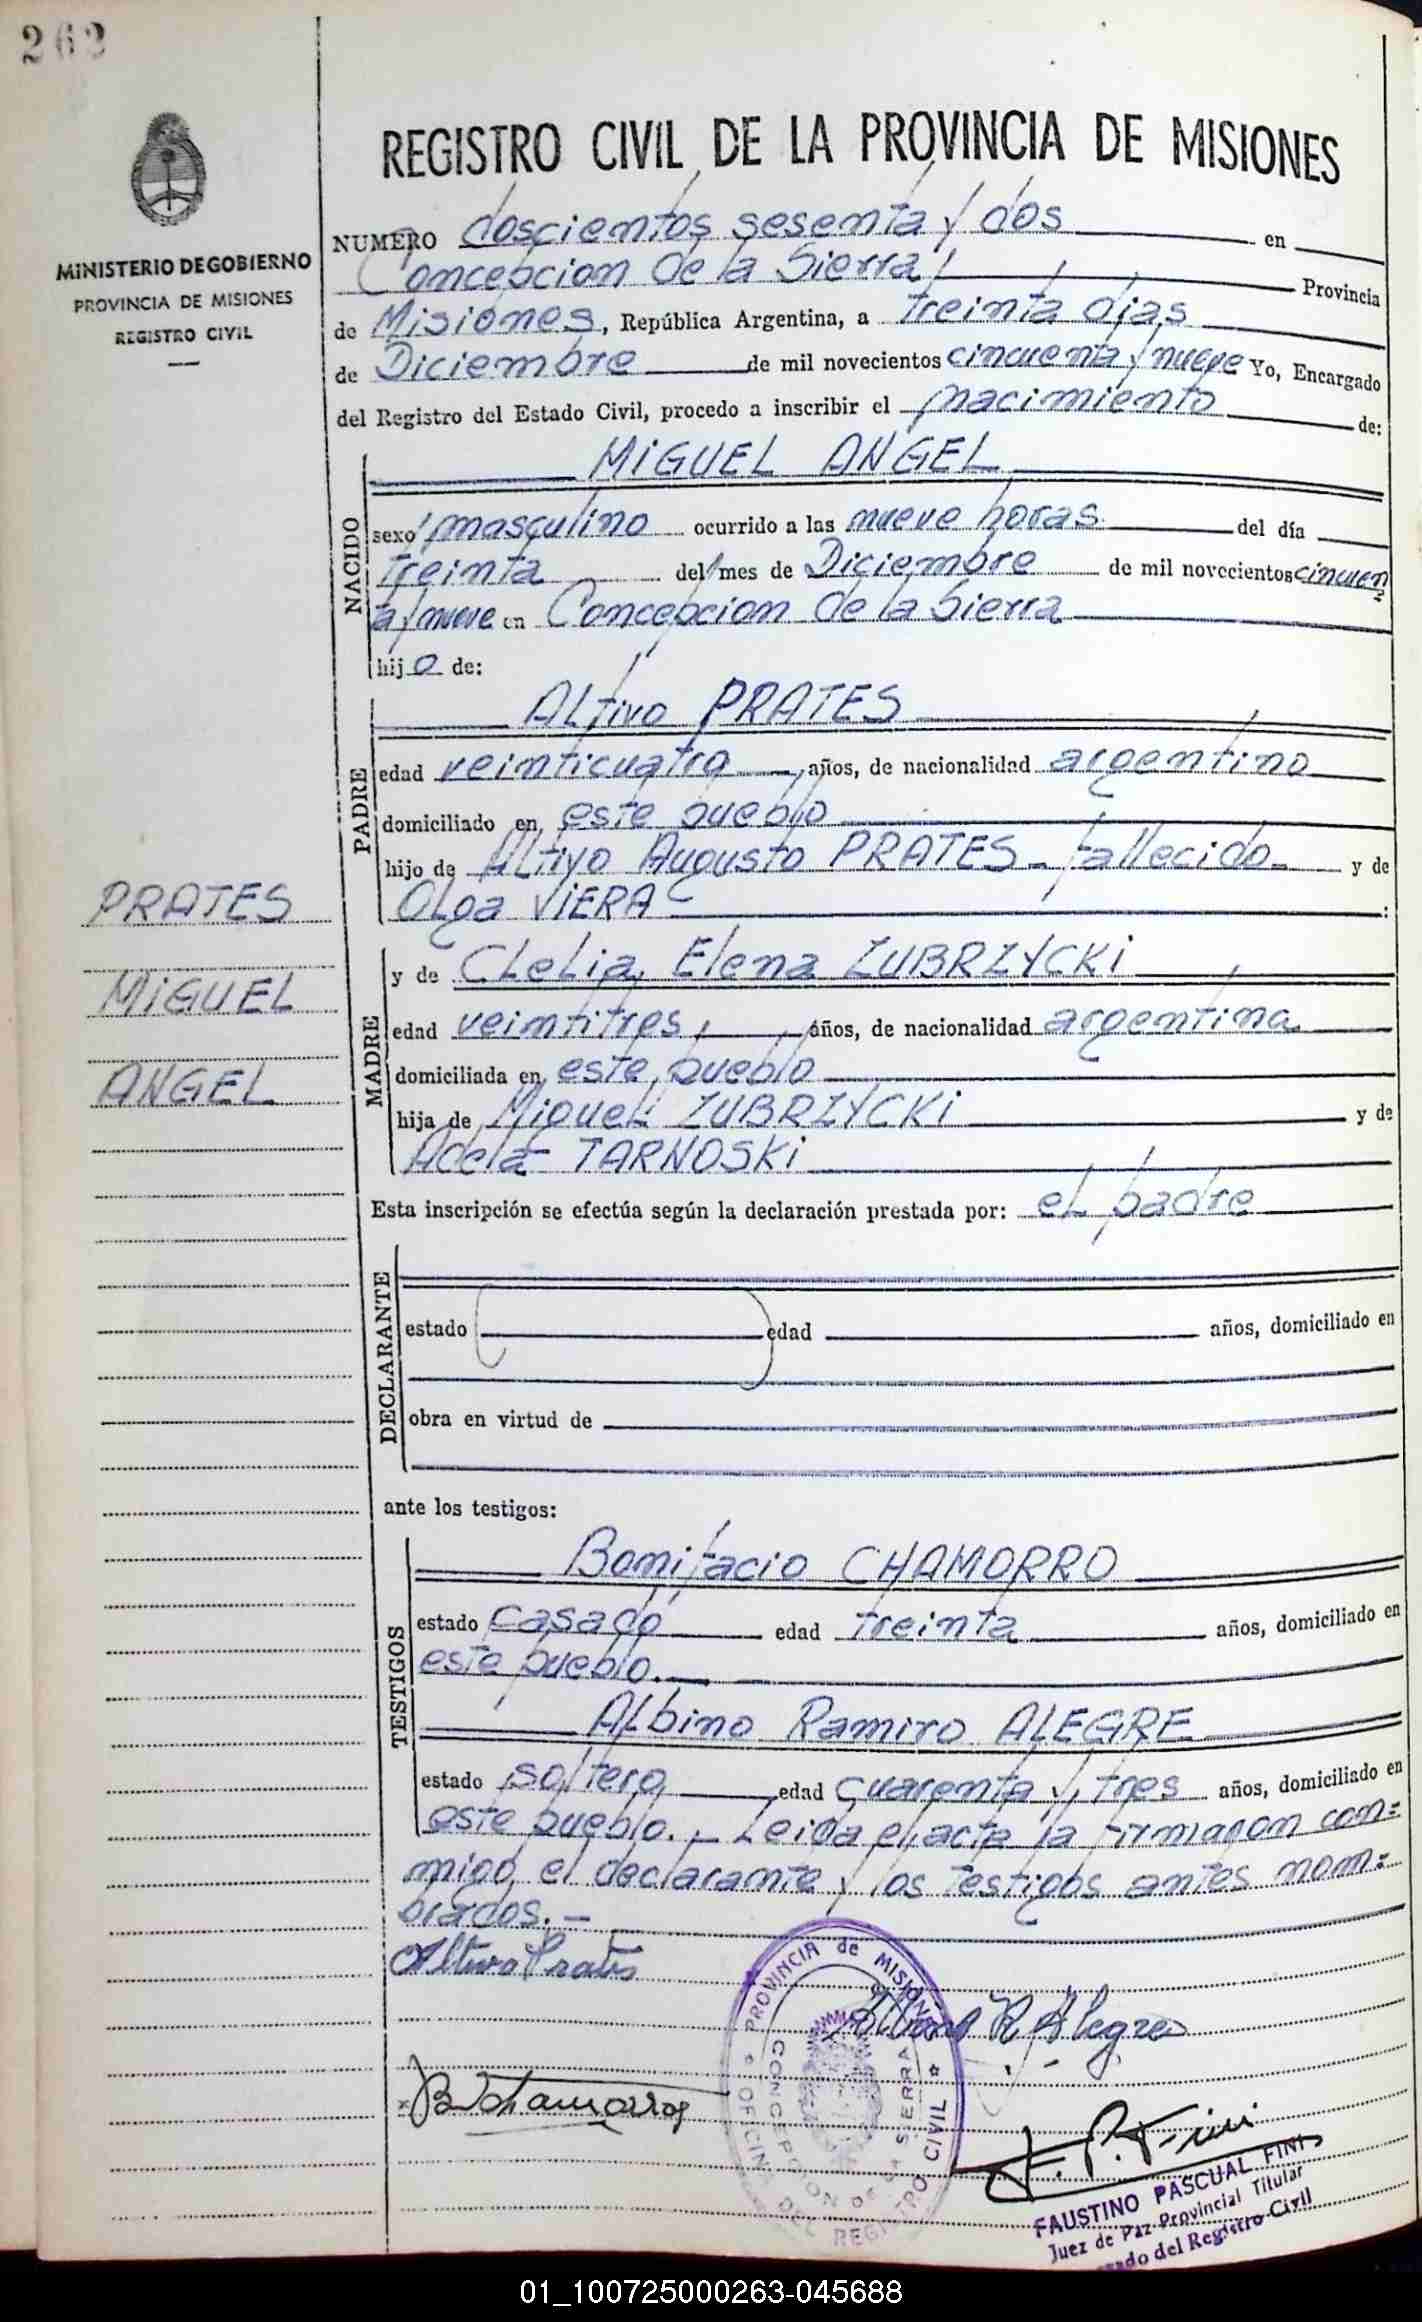 262
MINISTERIO DE GOBIERNO
PROVINCIA DE MISIONES
REGISTRO CIVIL
REGISTRO CIVIL DE LA PROVINCIA DE MISIONES
NUMERO doscientos sesenta y dos en
Concepcion de la Sierra Provincia
de Misiones, República Argentina, a treinta dias
de Diciembre de mil novecientos cincuenta y nueve Yo, Encargado
del Registro del Estado Civil, procedo a inscribir el nacimiento de:
NACIDO
MIGUEL ANGEL
sexo masculino ocurrido a las nueve horas del día
treinta del mes de Diciembre de mil novecientos cincuen
ta y nueve en Concepcion de la Sierra
hijo de:
PADRE
Altivo PRATES
edad veinticuatro años, de nacionalidad argentino
domiciliado en este pueblo
hijo de Altivo Augusto PRATES - fallecido y de
Olga VIERA :
PRATES
MIGUEL
ANGEL
MADRE
y de Clelia Elena ZUBRZYCKI
edad veintitres años, de nacionalidad argentina
domiciliada en este pueblo
hija de Miguel ZUBRZYCKI y de
Adela TARNOSKI
Esta inscripción se efectúa según la declaración prestada por: el padre
DECLARANTE
estado edad años, domiciliado en
obra en virtud de
ante los testigos:
TESTIGOS
Bonifacio CHAMORRO
estado casado edad treinta años, domiciliado en
este pueblo.
Albino Ramiro ALEGRE
estado soltero edad cuarenta y tres años, domiciliado en
este pueblo. - Leida el acta la firmaron con=
migo, el declarante y los testigos antes nom=
brados. -
Altivo Prates
PROVINCIA de MISIONES
OFICINA DEL REGISTRO CIVIL
CONCEPCION DE LA SIERRA
Albino R. Alegre
B Chamorro
F. P. Fini
FAUSTINO PASCUAL FINI
Juez de Paz Provincial Titular
del Registro Civil
01_100725000263-045688